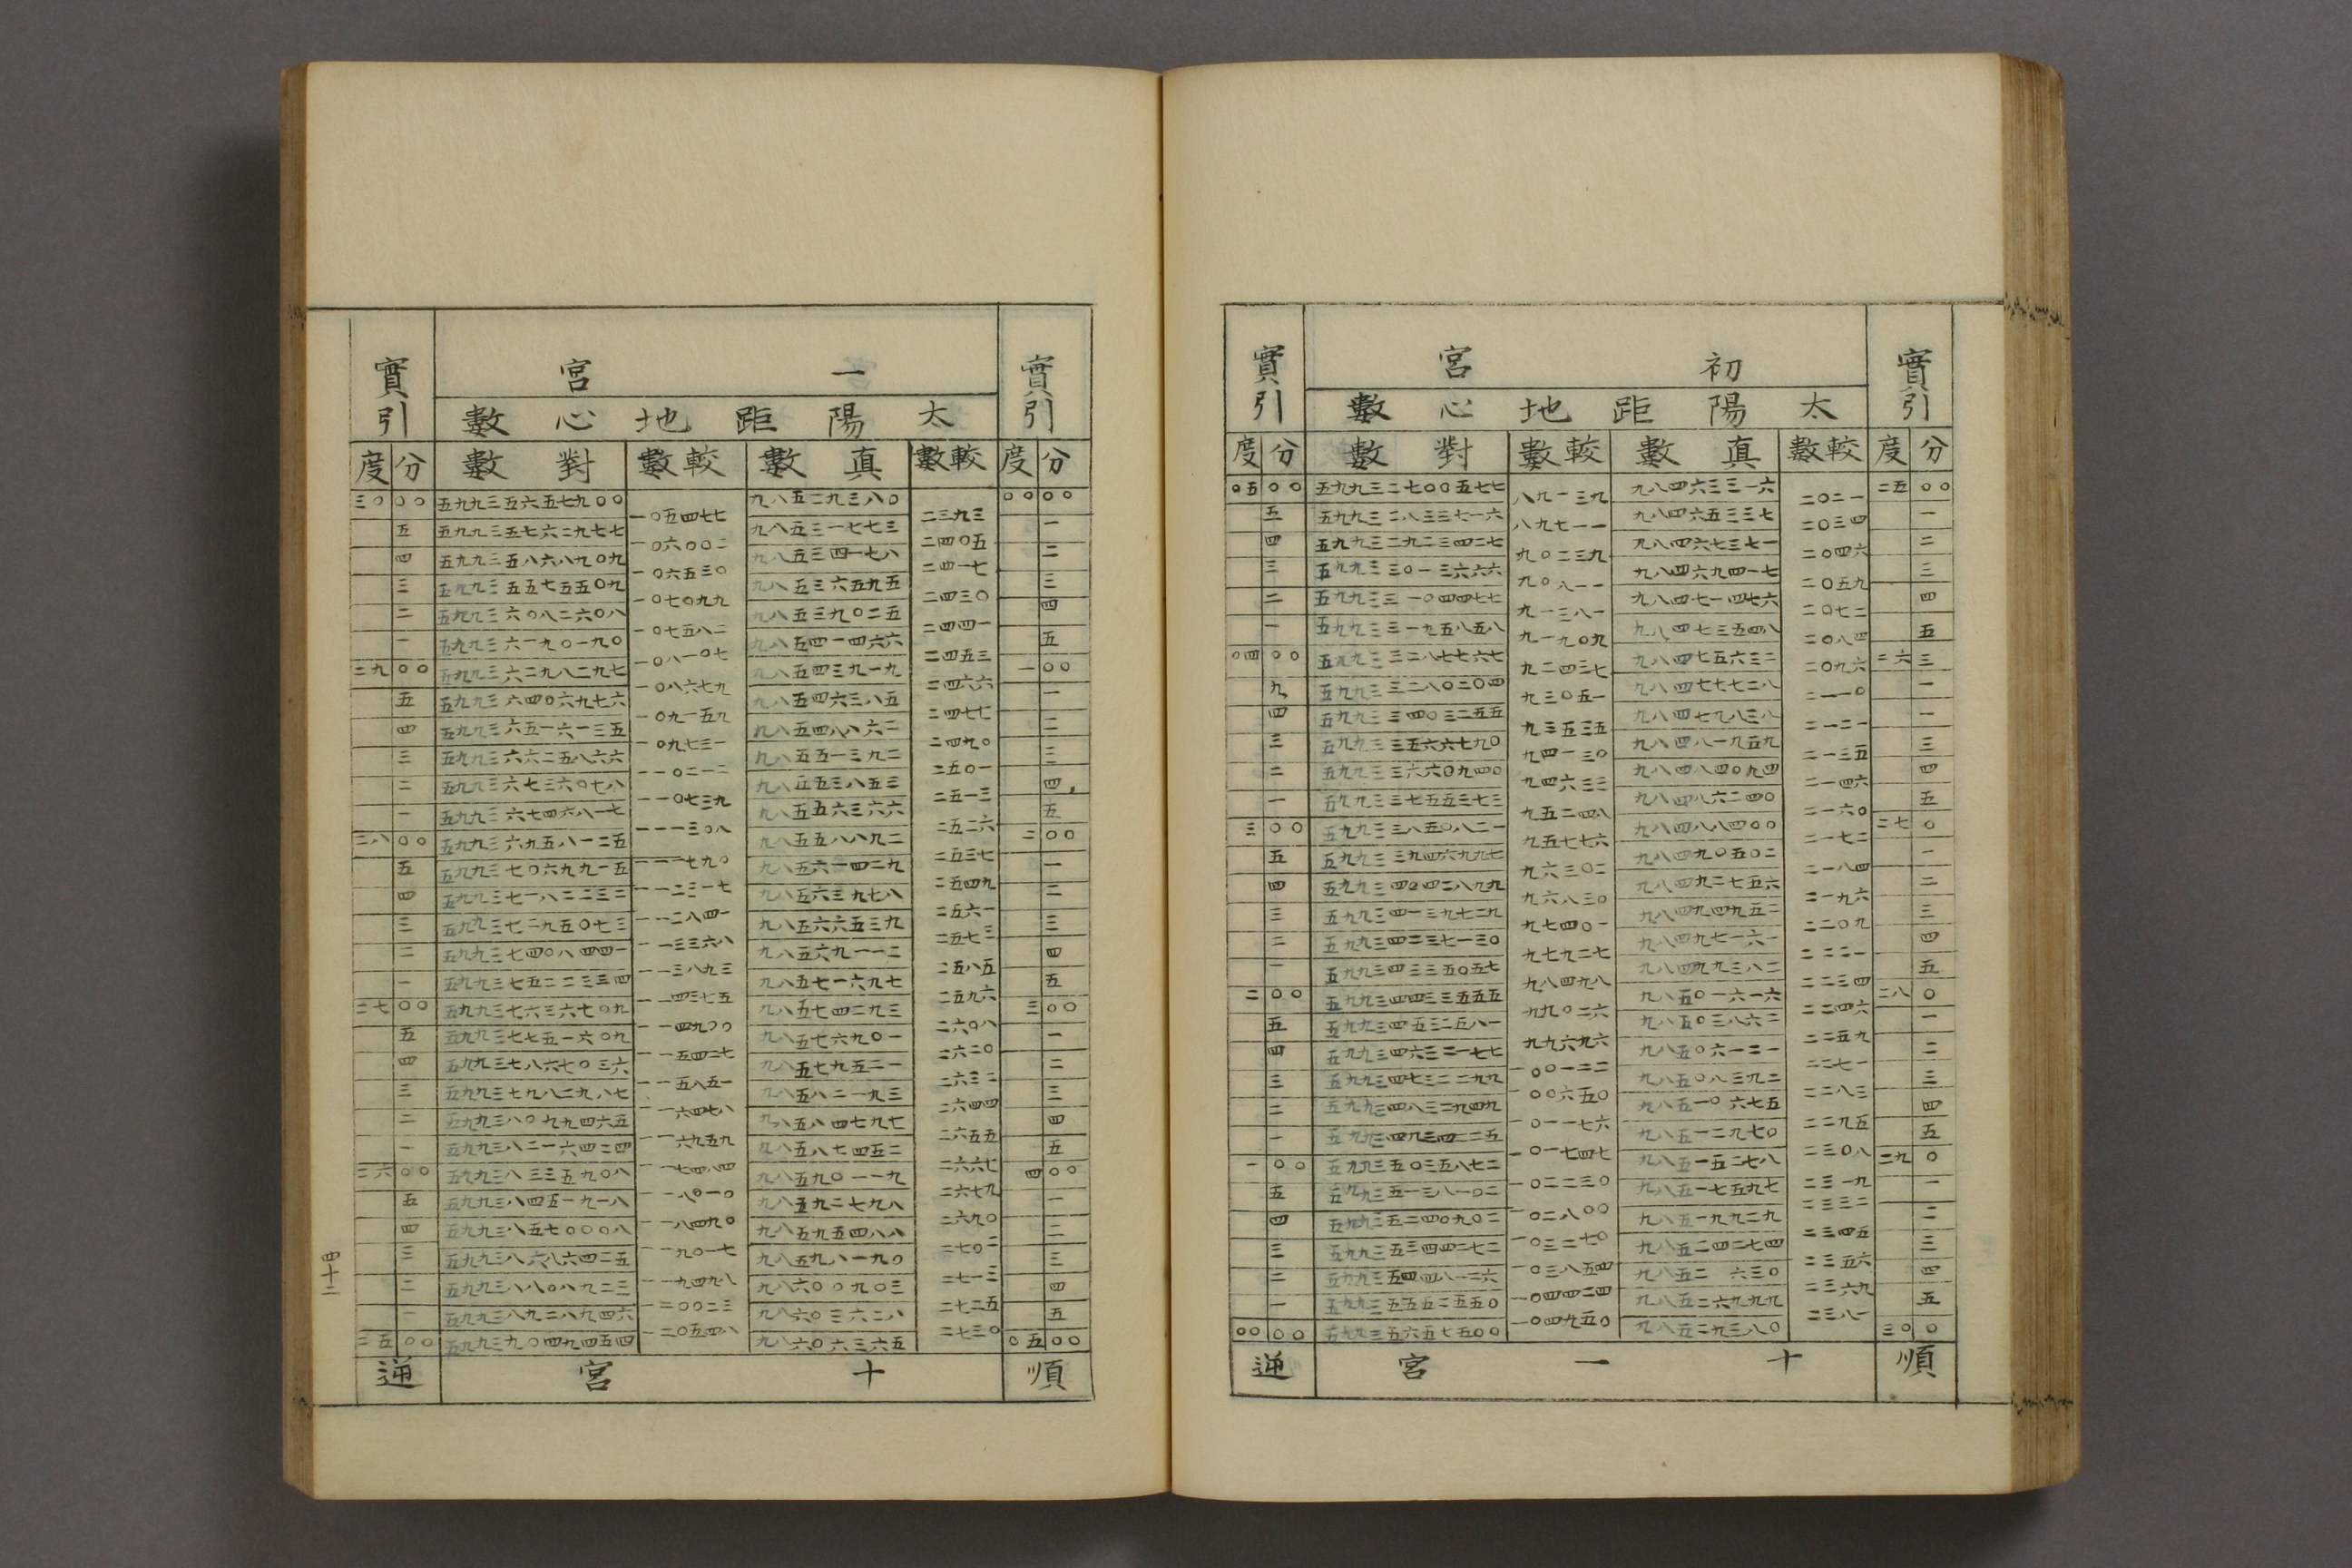 初宮
實引 太陽距地心數 實引
分 度 較數 真數 較數 對數 分 度
二五 〇〇 九八四六三三一六 五九九三二七〇〇五七七 〇五 〇〇
二〇二一 八九一三九
一 九八四六五三三七 五九九三二八三三七一六 五
二〇三四 八九七一一
二 九八四六七三七一 五九九三二九二三四二七 四
二〇四六 九〇二三九
三 九八四六九四一七 五九九三三〇一三六六六 三
二〇五九 九〇八一一
四 九八四七一四七六 五九九三三一〇四四七七 二
二〇七二 九一三八一
五 九八四七三五四八 五九九三三一九五八五八 一
二〇八四 九一九〇九
二六 三 九八四七五六三二 五九九三三二八七七六七 〇四 〇〇
二〇九六 九二四三七
一 九八四七七七二八 五九九三三二八〇三〇四 九
二一一〇 九三〇五一
一 九八四七九八三八 五九九三三四〇三二五五 四
二一二一 九三五三五
三 九八四八一九五九 五九九三三五六六七九〇 三
二一三五 九四一三〇
四 九八四八四〇九四 五九九三三六六〇九四〇 二
二一四六 九四六三三
五 九八四八六二四〇 五九九三三七五五三七三 一
二一六〇 九五二四八
二七 〇 九八四八八四〇〇 五九九三三八五〇八二一 三 〇〇
二一七二 九五七七六
一 九八四九〇五〇二 五九九三三九四六九九七 五
二一八四 九六三〇二
二 九八四九二七五六 五九九三四〇四二八九九 四
二一九六 九六八三〇
三 九八四九四九五二 五九九三四一三九七二九 三
二二〇九 九七四〇一
四 九八四九七一六一 五九九三四二三七一三〇 二
二二二一 九七九二七
五 九八四九九三八二 五九九三四三三五〇五七 一
二二三四 九八四九八
二八 〇 九八五〇一六一六 五九九三四四三三五五五 二 〇〇
二二四六 九九〇二六
一 九八五〇三八六二 五九九三四五三二五八一 五
二二五九 九九六九六
二 九八五〇六一二一 五九九三四六三二一七七 四
二二七一 一〇〇一二二
三 九八五〇八三九二 五九九三四七三二二九九 三
二二八三 一〇〇六五〇
四 九八五一〇六七五 五九九三四八三二九四九 二
二二九五 一〇一一七六
五 九八五一二九七〇 五九九三四九三四一二五 一
二三〇八 一〇一七四七
二九 〇 九八五一五二七八 五九九三五〇三五八七二 一 〇〇
二三一九 一〇二二三〇
一 九八五一七五九七 五九九三五一三八一〇二 五
二三三二 一〇二八〇〇
二 九八五一九九二九 五九九三五二四〇九〇二 四
二三四五 一〇三二七〇
三 九八五二四二七四 五九九三五三四四二七二 三
二三五六 一〇三八五四
四 九八五二 六三〇 五九九三五四四八一二六 二
二三六九 一〇四四二四
五 九八五二六九九九 五九九三五五五二五五〇 一
二三八一 一〇四九五〇
三〇 〇 九八五二九三八〇 五九九三五六五七五〇〇 〇〇 〇〇
順 十一宮 逆
一宮
實引 太陽距地心數 實引
分 度 較數 真數 較數 對數 分 度
〇〇 〇〇 九八五二九三八〇 五九九三五六五七九〇〇 三〇 〇〇
二三九三 一〇五四七七
一 九八五三一七七三 五九九三五七六二九七七 五
二四〇五 一〇六〇〇二
二 九八五三四一七八 五九九三五八六八九〇九 四
二四一七 一〇六五三〇
三 九八五三六五九五 五九九三五五七五五〇九 三
二四三〇 一〇七〇九九
四 九八五三九〇二五 五九九三六〇八二六〇八 二
二四四一 一〇七五八二
五 九八五四一四六六 五九九三六一九〇一九〇 一
二四五三 一〇八一〇七
一 〇〇 九八五四三九一九 五九九三六二九八二九七 二九 〇〇
二四六六 一〇八六七九
一 九八五四六三八五 五九九三六四〇六九七六 五
二四七七 一〇九一五九
二 九八五四八八六二 五九九三六五一六一三五 四
二四九〇 一〇九七三一
三 九八五五一三九二 五九九三六六二五八六六 三
二五〇一 一一〇二一二
四 九八五五三八五三 五九九三六七三六〇七八 二
二五一三 一一〇七三九
五 九八五五六三六六 五九九三六七四六八一七 一
二五二六 一一一三〇八
二 〇〇 九八五五八八九二 五九九三六九五八一二五 二八 〇〇
二五三七 一一一七九〇
一 九八五六一四二九 五九九三七〇六九九一五 五
二五四九 一一二三一七
二 九八五六三九七八 五九九三七一八二二三二 四
二五六一 一一二八四一
三 九八五六六五三九 五九九三七二九五〇七三 三
二五七三 一一三三六八
四 九八五六九一一二 五九九三七四〇八四四一 二
二五八五 一一三八九三
五 九八五七一六九七 五九九三七五二二三三四 一
二五九六 一一四三七五
三 〇〇 九八五七四二九三 五九九三七六三六七〇九 二七 〇〇
二六〇八 一一四九〇〇
一 九八五七六九〇一 五九九三七七五一六〇九 五
二六二〇 一一五四二七
二 九八五七九五二一 五九九三七八六七〇三六 四
二六三二 一一五八五一
三 九八五八二一九三 五九九三七九八二九八七 三
二六四四 一一六四七八
四 九八五八四七九七 五九九三八〇九九四六五 二
二六五五 一一六九五九
五 九八五八七四五二 五九九三八二一六四二四 一
二六六七 一一七四八四
四 〇〇 九八五九〇一一九 五九九三八三三五九〇八 二六 〇〇
二六七九 一一八〇一〇
一 九八五九二七九八 五九九三八四五一九一八 五
二六九〇 一一八四九〇
二 九八五九五四八八 五九九三八五七〇〇〇八 四
二七〇二 一一九〇一七
三 九八五九八一九〇 五九九三八六八六四二五 三
二七一三 一一九四九八
四 九八六〇〇九〇三 五九九三八八〇八九二三 二
二七二五 一二〇〇二三
五 九八六〇三六二八 五九九三八九二八九四六 一
二七三〇 一二〇五四八
〇五 〇〇 九八六〇六三六五 五九九三九〇四九四五四 二五 〇〇
順 十宮 逆
四十二